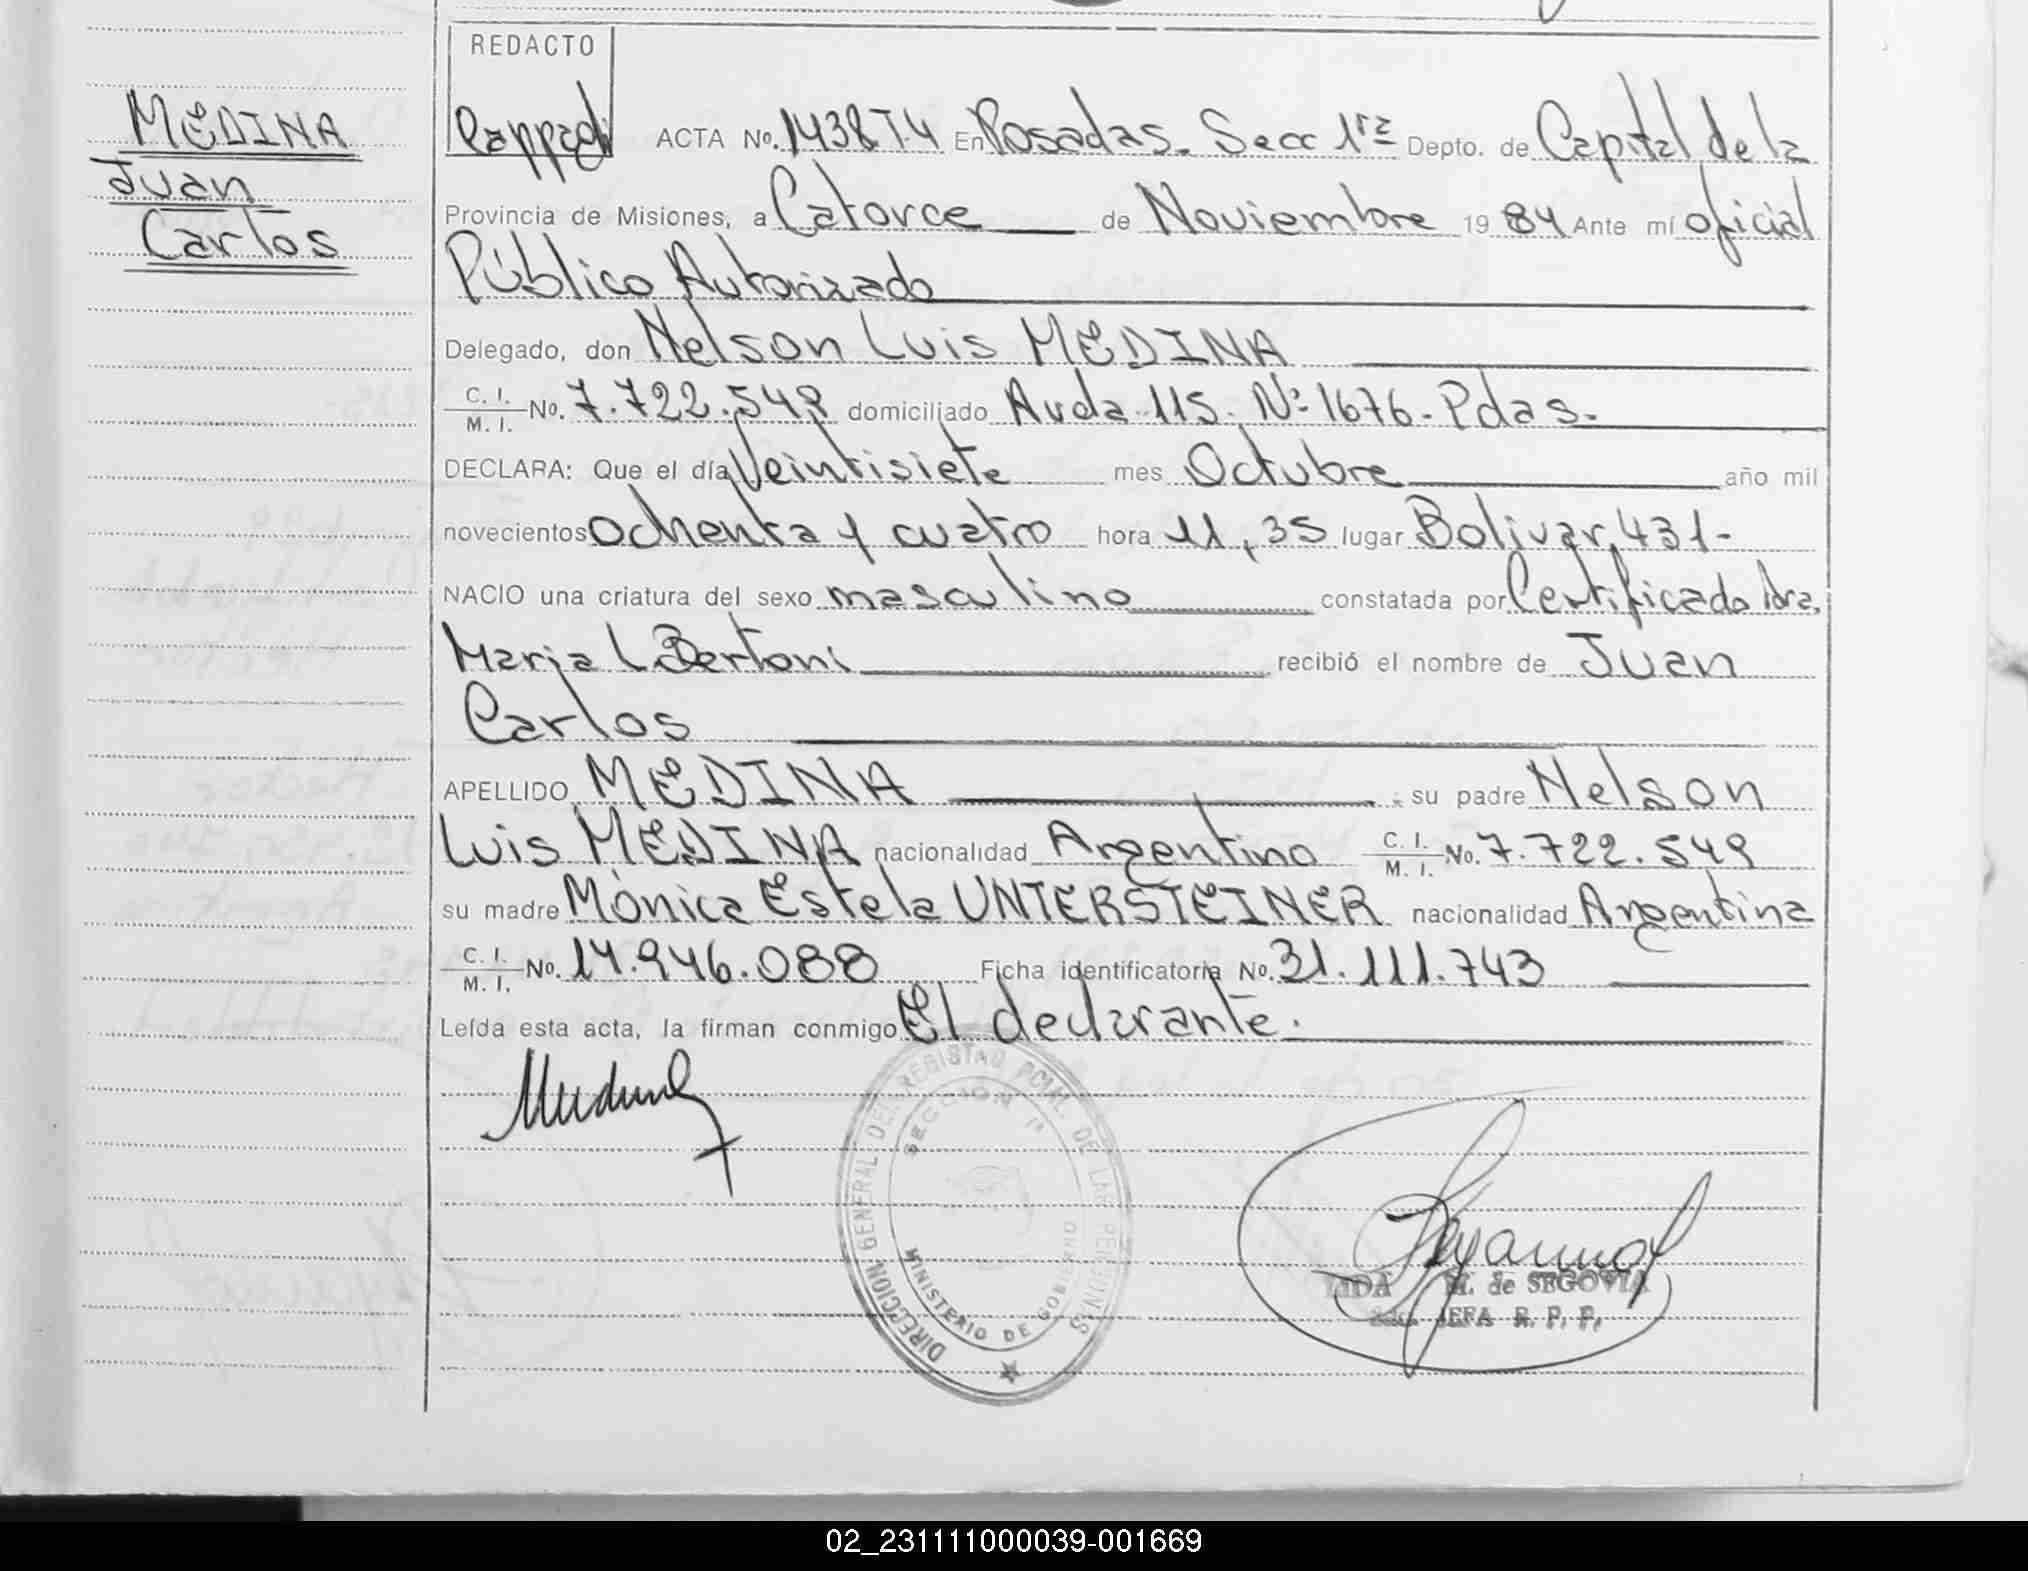 REDACTO
MEDINA
Juan
Carlos
ACTA No. 1438T4 En Posadas. Secc 1ra Depto. de Capital de la
Provincia de Misiones, a Catorce de Noviembre 1984 Ante mí oficial
Público Autorizado
Delegado, don Nelson Luis MEDINA
C. I. M. I. No. 7.722.549 domiciliado Avda. 115. Nº 1676 - Pdas.
DECLARA: Que el día Veintisiete mes Octubre año mil
novecientos ochenta y cuatro hora 11,35 lugar Bolivar, 431-
NACIO una criatura del sexo masculino constatada por Certificado Dra.
Maria L Bertoni recibió el nombre de Juan
Carlos
APELLIDO MEDINA su padre Nelson
Luis MEDINA nacionalidad Argentino C. I. M. I. No. 7.722.549
su madre Mónica Estela UNTERSTEINER nacionalidad Argentina
C. I. M. I. No. 17.946.088 Ficha identificatoria No. 31.111.743
Leída esta acta, la firman conmigo El declarante.
DIRECCION GENERAL DEL REGISTRO PCIAL. DE LAS PERSONAS
SECCION 1ª
MINISTERIO DE GOBIERNO
LIDA M. de SEGOVIA
JEFA R. P. P.
02_231111000039-001669